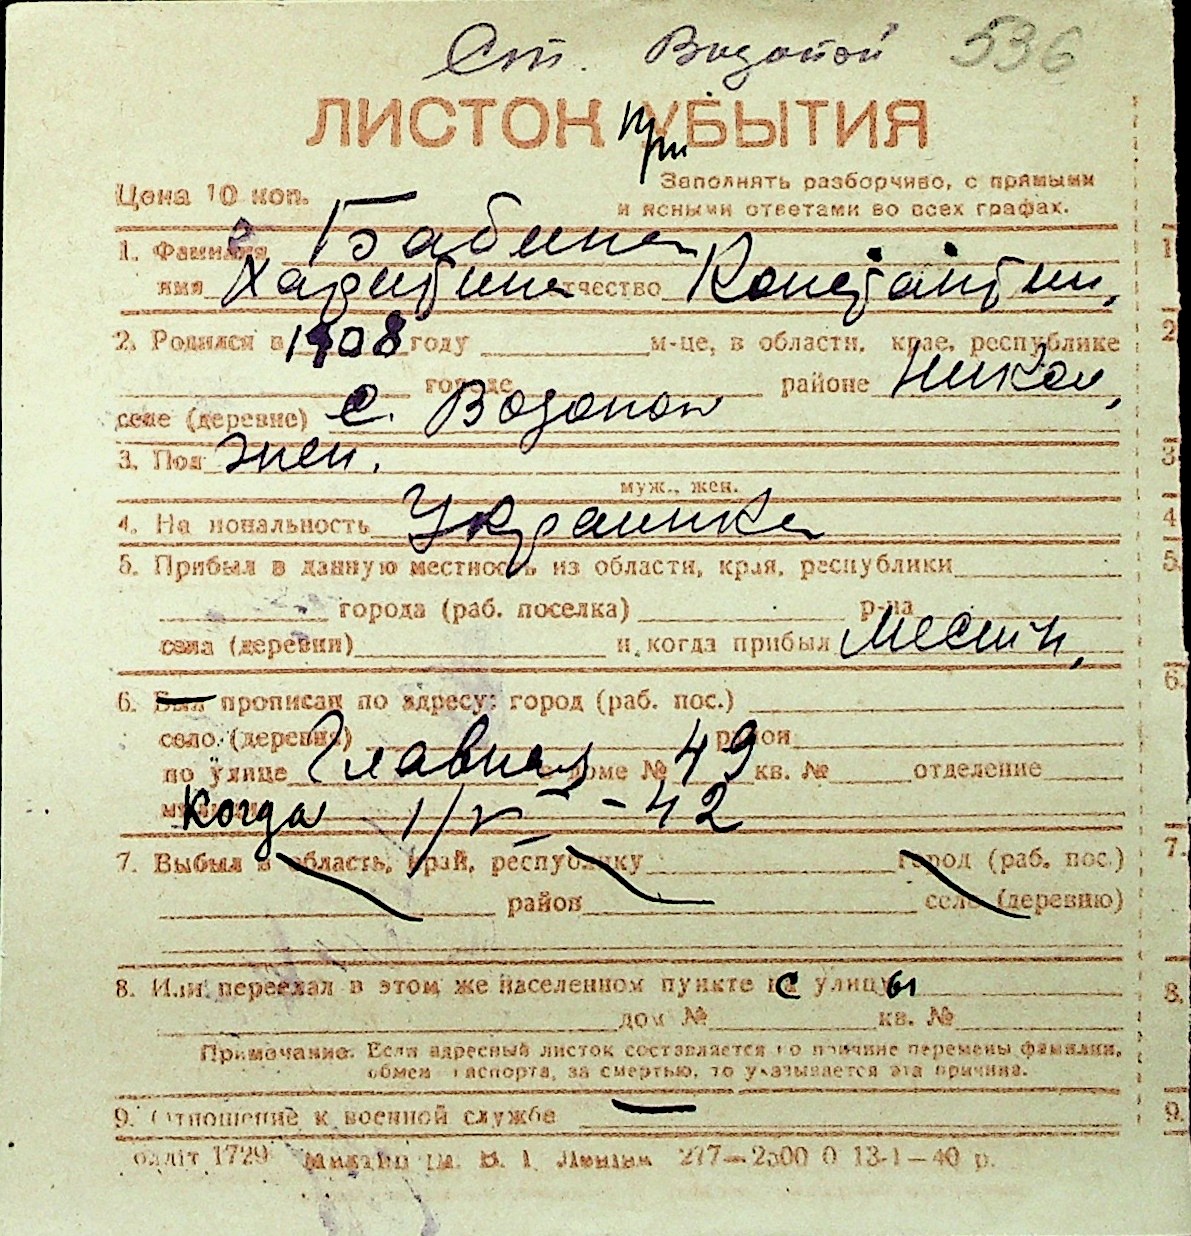 Ст. Водопой 536
ЛИСТОК УБЫТИЯ
при
Цена 10 коп.
Заполнять разборчиво, с прямыми
и ясными ответами во всех графах.
1. Фамилия Бабина
имя Харитина отчество Константин.
2. Родился в 1908 году м-це, в области, крае, республике
городе районе Никол.
селе (деревне) с. Водопой
3. Пол жен.
муж., жен.
4. Национальность Украинка
5. Прибыл в данную местность из области, края, республики
города (раб. поселка) р-на
села (деревни) и когда прибыл местн.
6. Был прописан по адресу: город (раб. пос.)
село (деревня) район
по улице Главная доме № 49 кв. № отделение
Когда 1/V-42
7. Выбыл в область, край, республику город (раб. пос.)
район село (деревню)
8. Или переехал в этом же населенном пункте с улицы
дом № кв. №
Примечание. Если адресный листок составляется по причине перемены фамилии,
обмена паспорта, за смертью, то указывается эта причина.
9. Отношение к военной службе —
1729 277—2500 0 13-1—40 р.